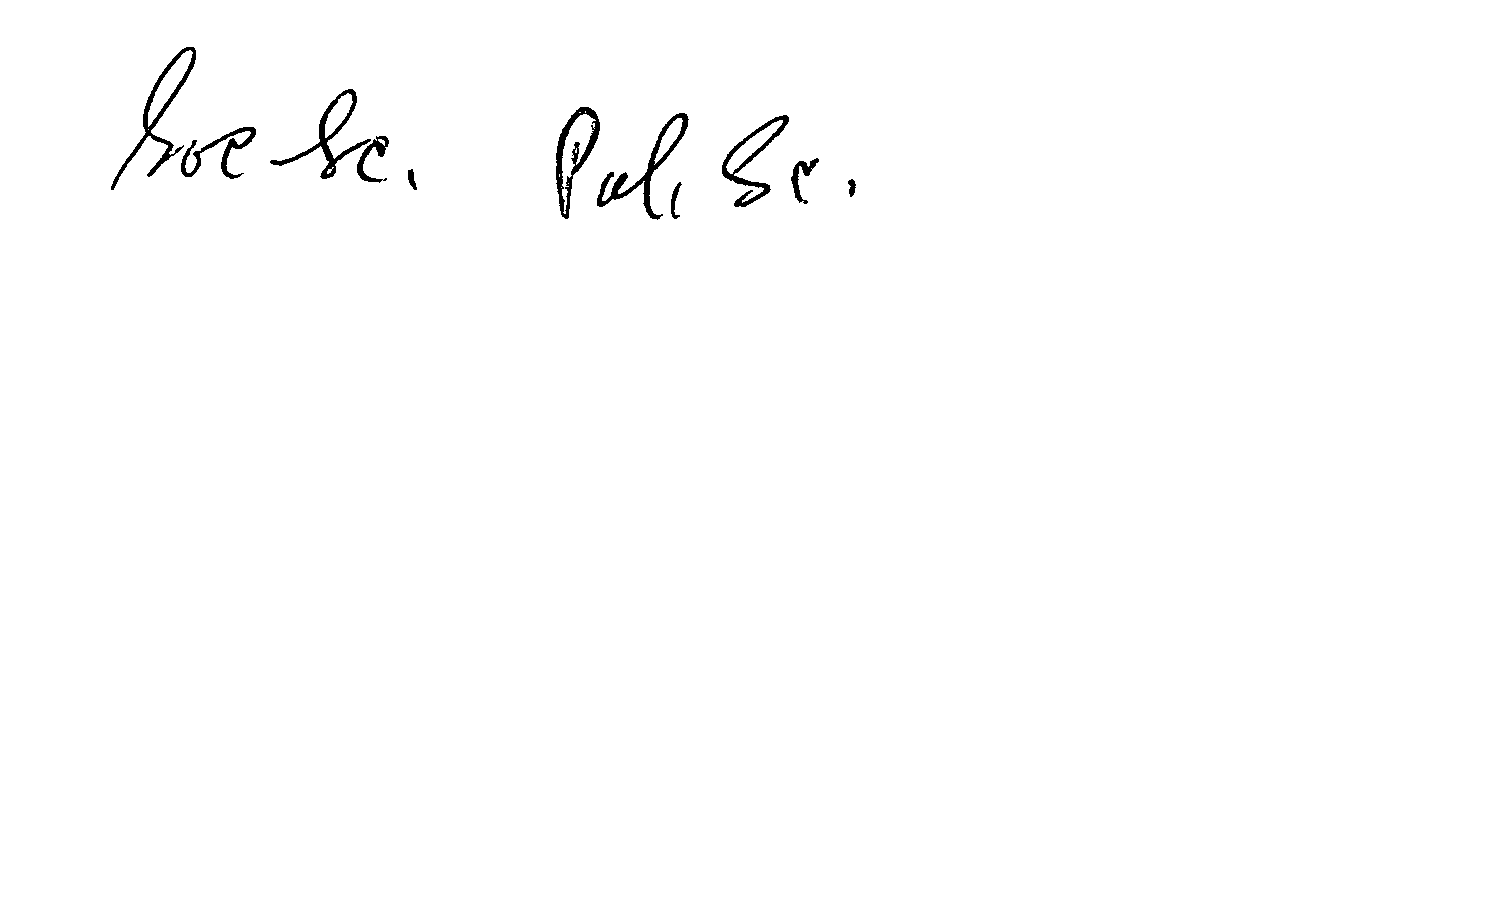 Soc Sc. Pol. Sc.